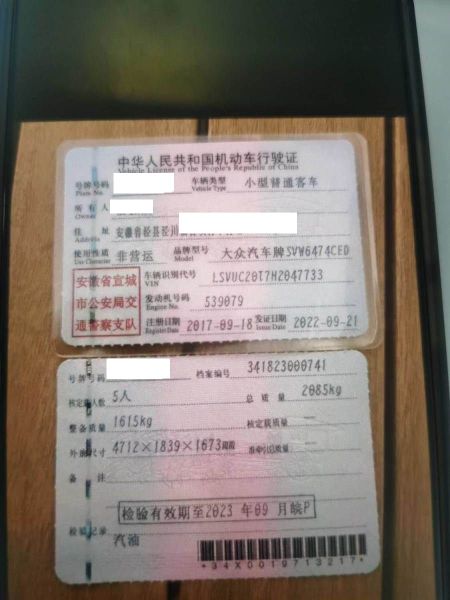 中华人民共和国机动车行驶证
Vehicle License of the People's Republic of China
号牌号码 车辆类型 小型普通客车
Plate No. Vehicle Type
所有人
Owner
住址 安徽省泾县泾川
Address
使用性质 非营运 品牌型号 大众汽车牌SVW6474CED
Use Character Model
安徽省宣城
市公安局交
通警察支队
车辆识别代号 LSVUC20T7H2047733
VIN
发动机号码 539079
Engine No.
注册日期 2017-09-18 发证日期 2022-09-21
Register Date Issue Date
号牌号码 档案编号 341823000741
核定载人数 5人 总质量 2085kg
整备质量 1615kg 核定载质量 —
外廓尺寸 4712×1839×1673mm 准牵引总质量 —
备注
检验有效期至2023年09月皖P
检验记录
汽油
*34X0019713217*